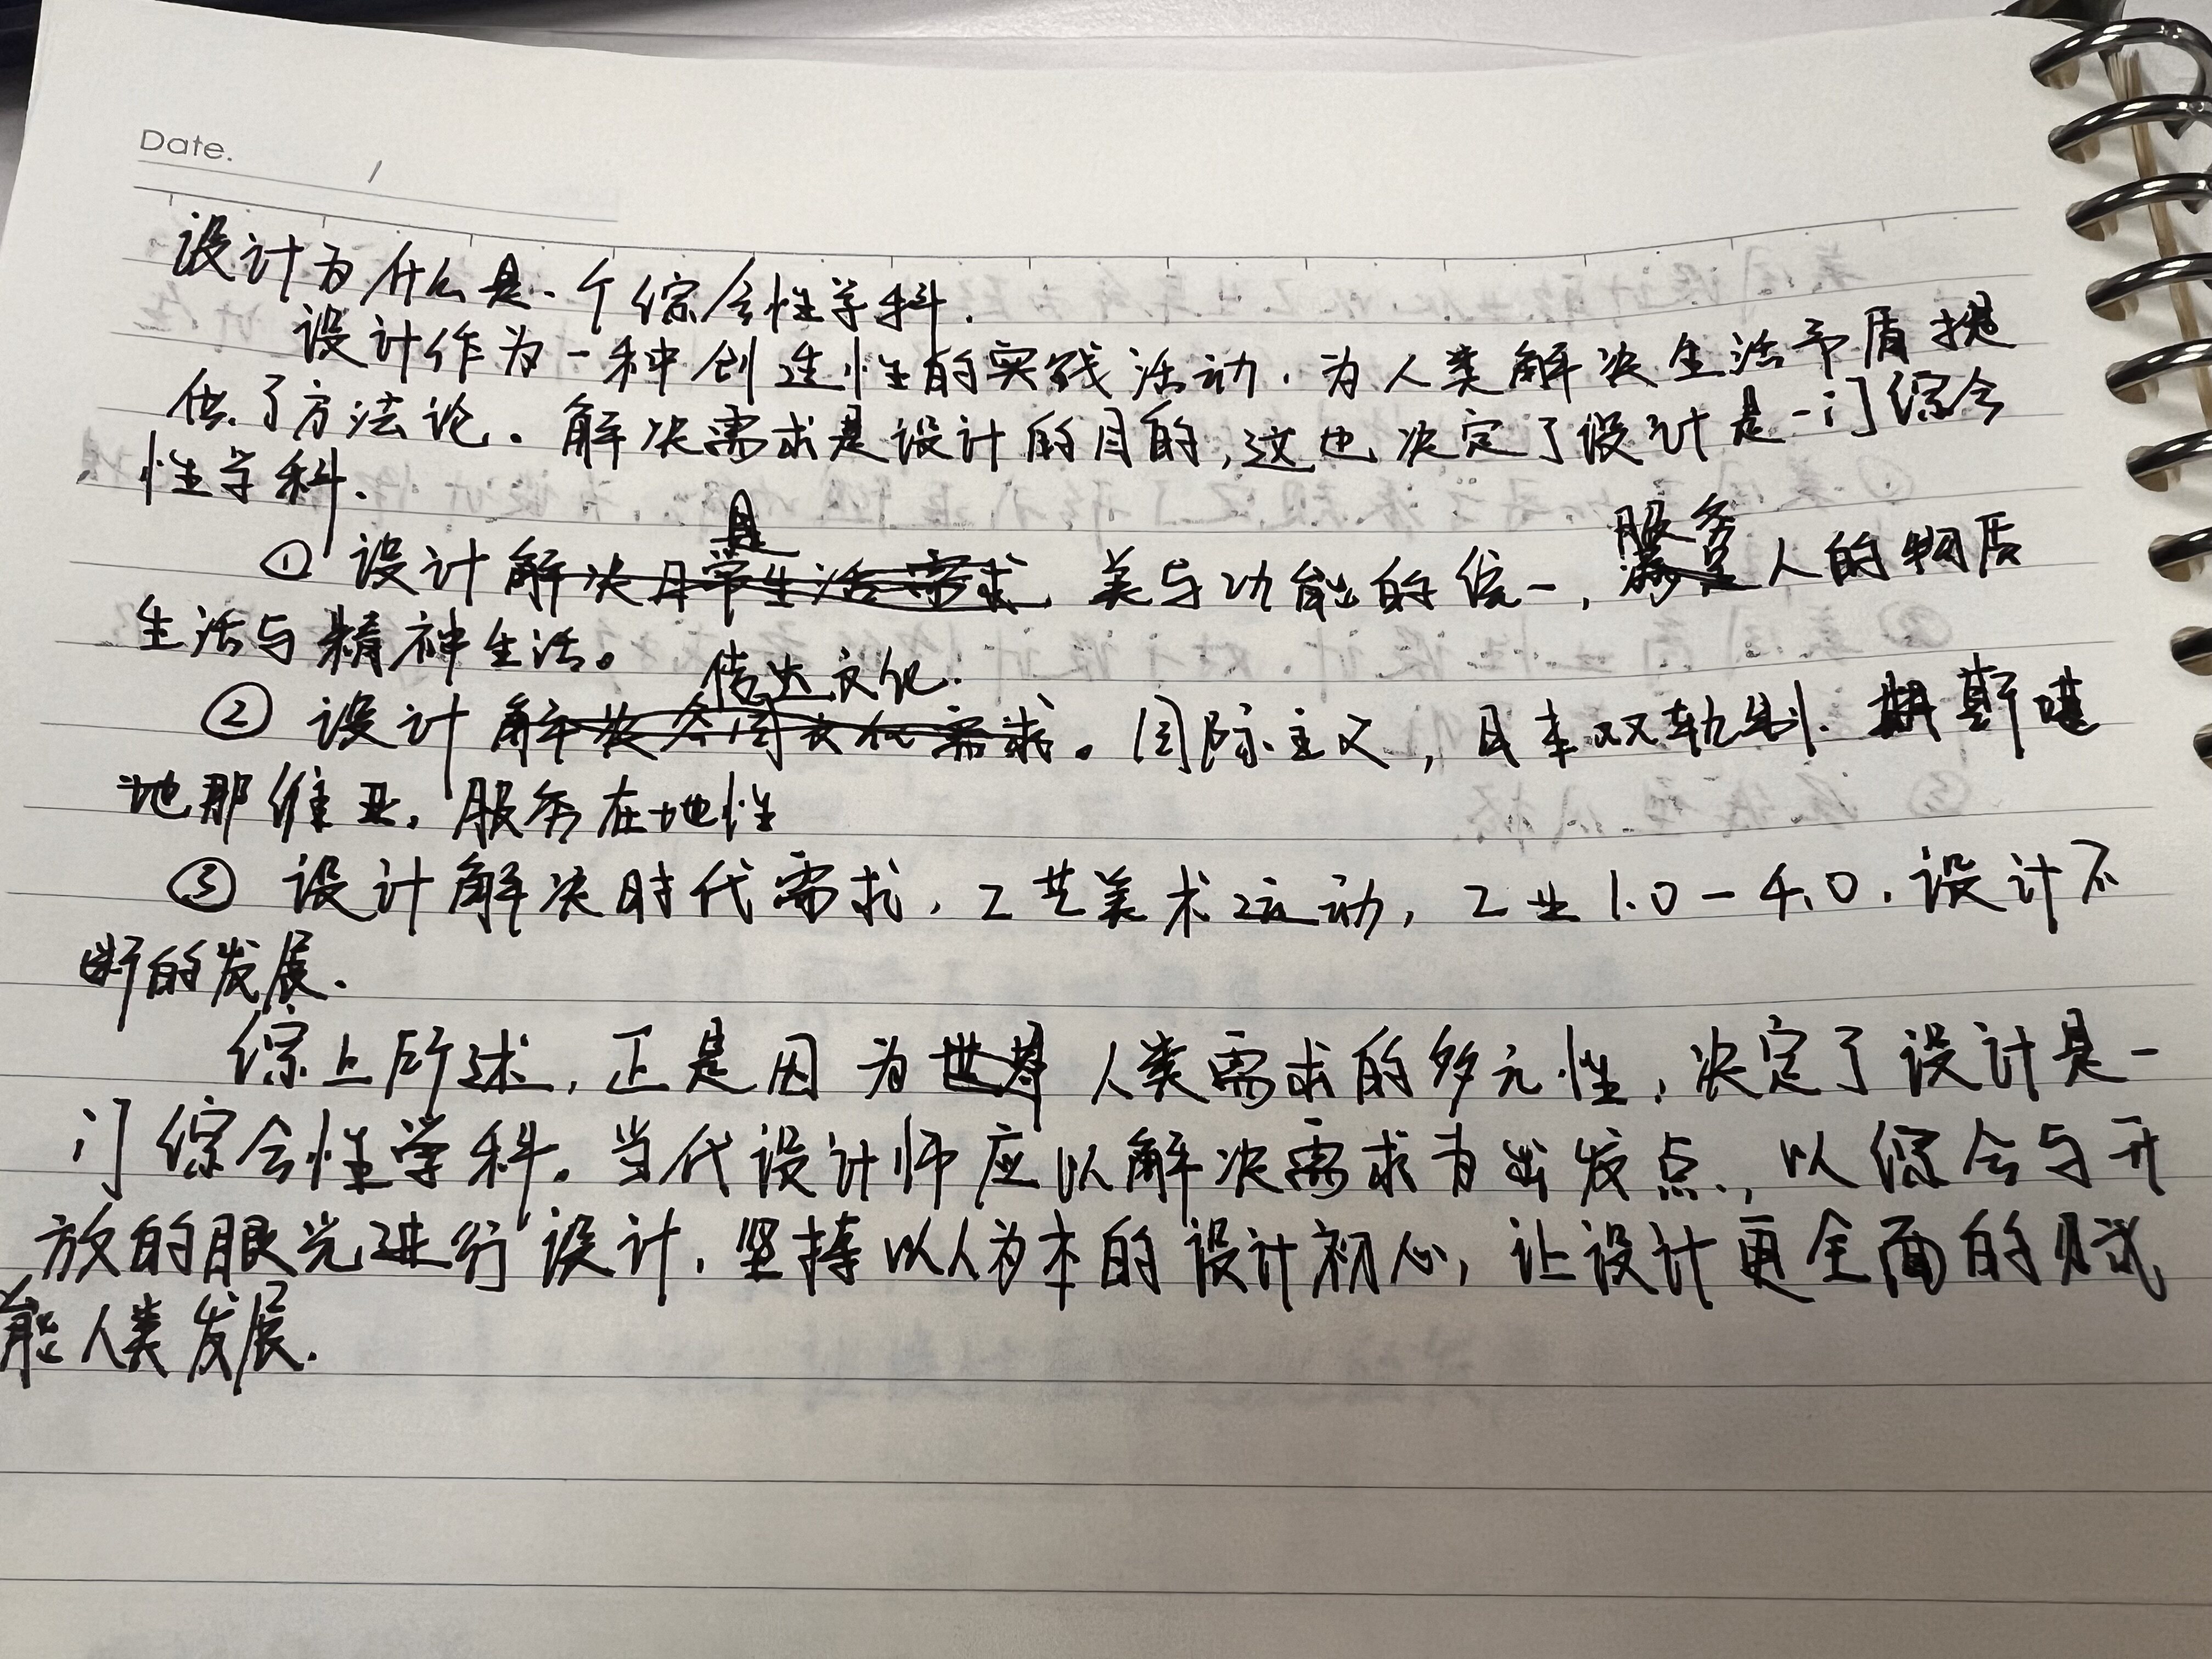 Date.
设计为什么是一个综合性学科.
设计作为一种创造性的实践活动.为人类解决生活矛盾提
供了方法论。解决需求是设计的目的,这也决定了设计是一门综合
性学科.
① 设计是美与功能的统一,服务人的物质
生活与精神生活。
② 设计传达文化.国际主义,日本双轨制.斯堪
地那维亚.服务在地性
③ 设计解决时代需求,工艺美术运动,工业1.0-4.0.设计不
断的发展.
综上所述,正是因为人类需求的多元性,决定了设计是一
门综合性学科。当代设计师应以解决需求为出发点,以综合与开
放的眼光进行设计.坚持以人为本的设计初心,让设计更全面的赋
能人类发展.